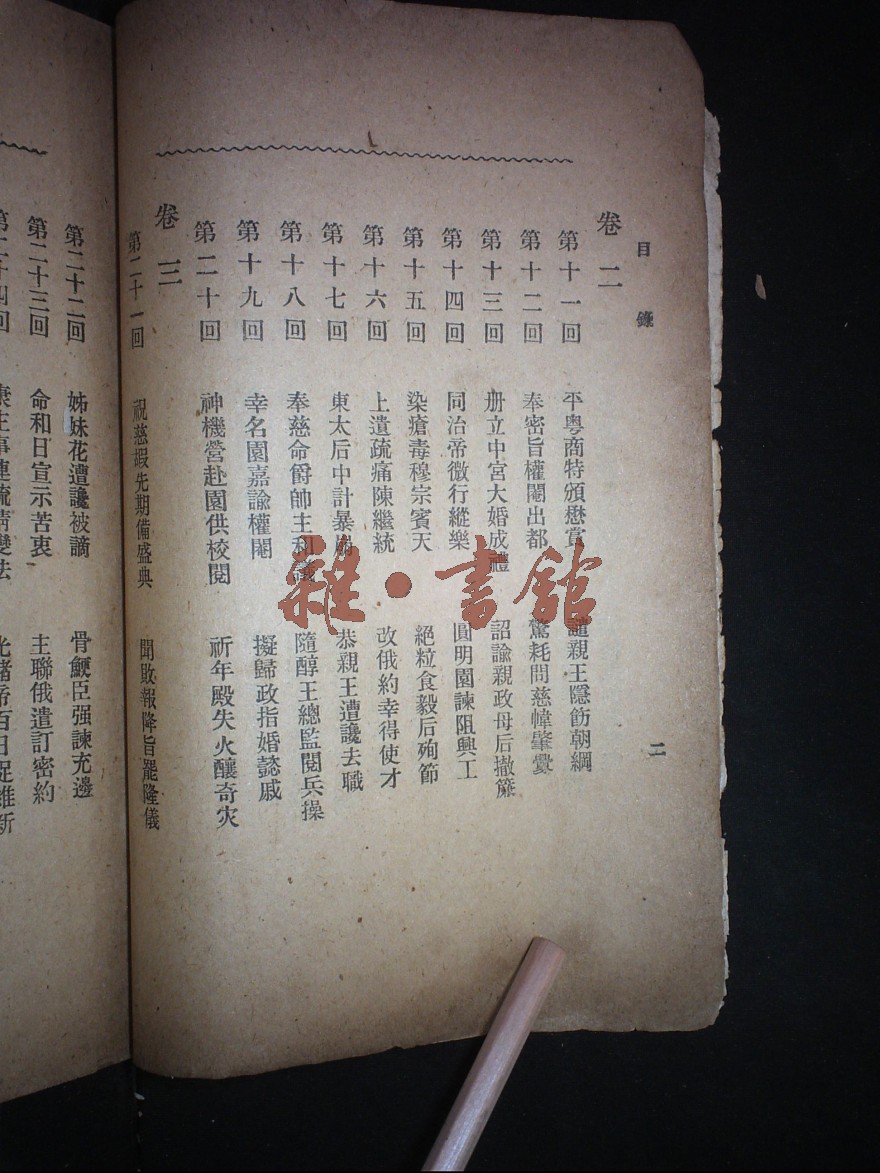 目錄
二
卷二
第十一回 平粵商特頒懋賞 譴親王隱飭朝綱
第十二回 奉密旨權閹出都 驚耗問慈幃肇釁
第十三回 册立中宮大婚成禮 詔諭親政母后撤簾
第十四回 同治帝微行縱樂 圓明園諫阻興工
第十五回 染瘡毒穆宗賓天 絕粒食毅后殉節
第十六回 上遺疏痛陳繼統 改俄約幸得使才
第十七回 東太后中計暴崩 恭親王遭讒去職
第十八回 奉慈命爵帥主和議 隨醇王總監閱兵操
第十九回 幸名園嘉諭權閹 擬歸政指婚懿戚
第二十回 神機營赴園供校閱 祈年殿失火釀奇灾
卷三
第二十一回 祝慈嘏先期備盛典 聞敗報降旨罷隆儀
第二十二回 姊妹花遭讒被謫 骨鯁臣强諫充邊
第二十三回 命和日宣示苦衷 主聯俄遣訂密約
第二十四回
雜·書館